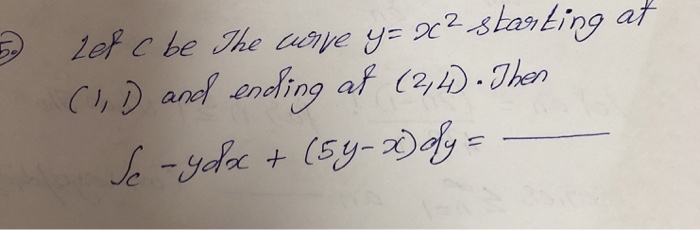 5.) Let C be The curve y = x² starting at
(1, 1) and ending at (2, 4). Then
∫c -ydx + (5y-x)dy = ______